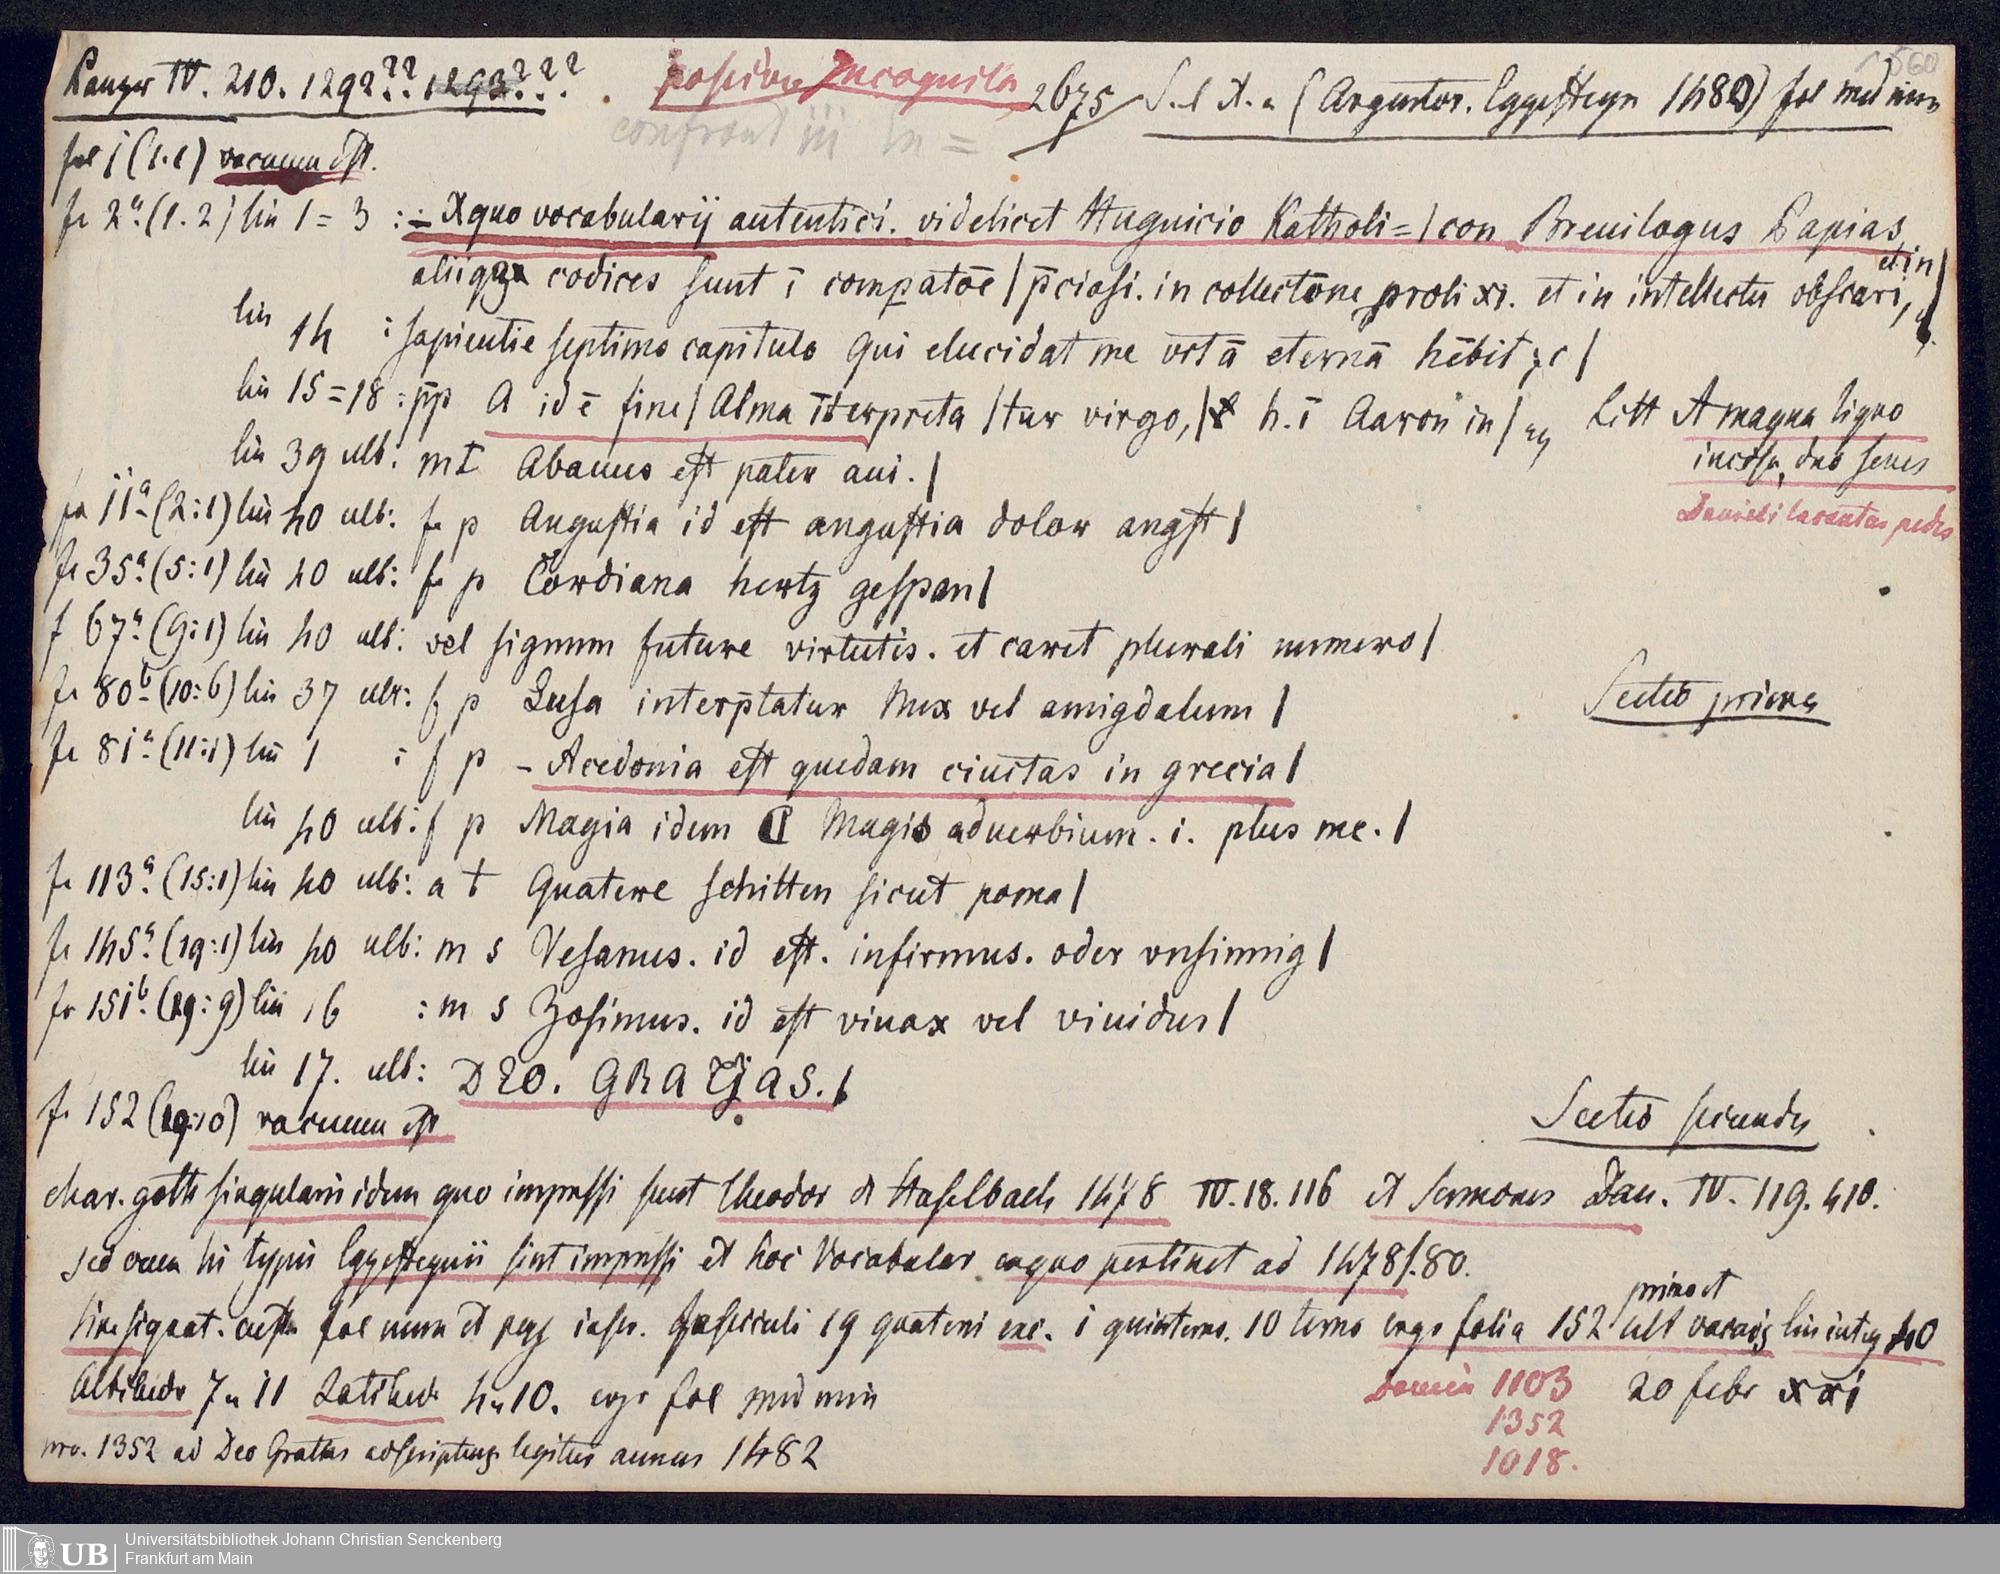 Panzer IV. 210. 1292?? 1293???
Incognita
2675
S. l. A. (Argentor. Eggesteyn 1480) fol med min
560
confront iii
fol j (1.1) vacuum est.
fo 2a (1.2) lin 1=3 : -Xquo vocabularij autentici. videlicet Huguicio Katholi=/con Breuilogus Papias
aliiqz codices sunt ī compatōe / p̄ciosi. in collectōne prolixi. et in intellectu obscuri, et in /
lin 14 : sapientie septimo capitulo qui elucidat me vitā eternā hēbit zc /
lin 15=18 : pp A id ē sine / Alma īterpreta / tur virgo, / h. ī Aaron in /
Litt A magna ligno
incisa, duo senes
Danieli lavantes pedes
lin 39 ult: mt Abauus est pater aui. /
fo 11a (2:1) lin 40 ult: f p Angustia id est angustia dolor angst /
fo 35a (5:1) lin 40 ult: f p Cordiana hertz gespan /
f 67a (9:1) lin 40 ult: vel signum future virtutis. et caret plurali numero /
fo 80b (10:6) lin 37 ult: f p Lusa interp̄tatur Nux vel amigdalum /
Sectio prima
fo 81a (11:1) lin 1 : f p -Acedonia est quedam ciuitas in grecia /
lin 40 ult: f p Magia idem ₵ Magis aduerbium. i. plus me. /
fo 113a (15:1) lin 40 ult: a t Quatere schitten sicut poma /
fo 145a (19:1) lin 40 ult: m s Vesanus. id est. infirmus. oder vnsinnig /
fo 151b (19:9) lin 16 : m s Zosimus. id est viuax vel viuidus /
lin 17. ult: DEO. GRATIAS. /
fo 152 (19:10) vacuum est
Sectio secunda
char. goth singularis idem quo impressi sunt Theodor d Haselbach 1478 IV. 18. 116 et Sermones Dan. IV. 119. 410.
sed cum hi typis Eggesteynii sint impressi et hoc Vocabular ergo pertinet ad 1478/.80.
sine signat. cust fol num et pag inscr. fasciculi 19 quaterni exc. 1 quinterno. 10 terno ergo folia 152 primo et ult vacuis lin integ 40
Altitudo 7 11 Latitudo 4 10. ergo fol med min
1103
1352
1018.
20 febr xxi
nro. 1352 ad Deo Gratias adscriptus legitur annus 1482
Universitätsbibliothek Johann Christian Senckenberg
Frankfurt am Main
UB